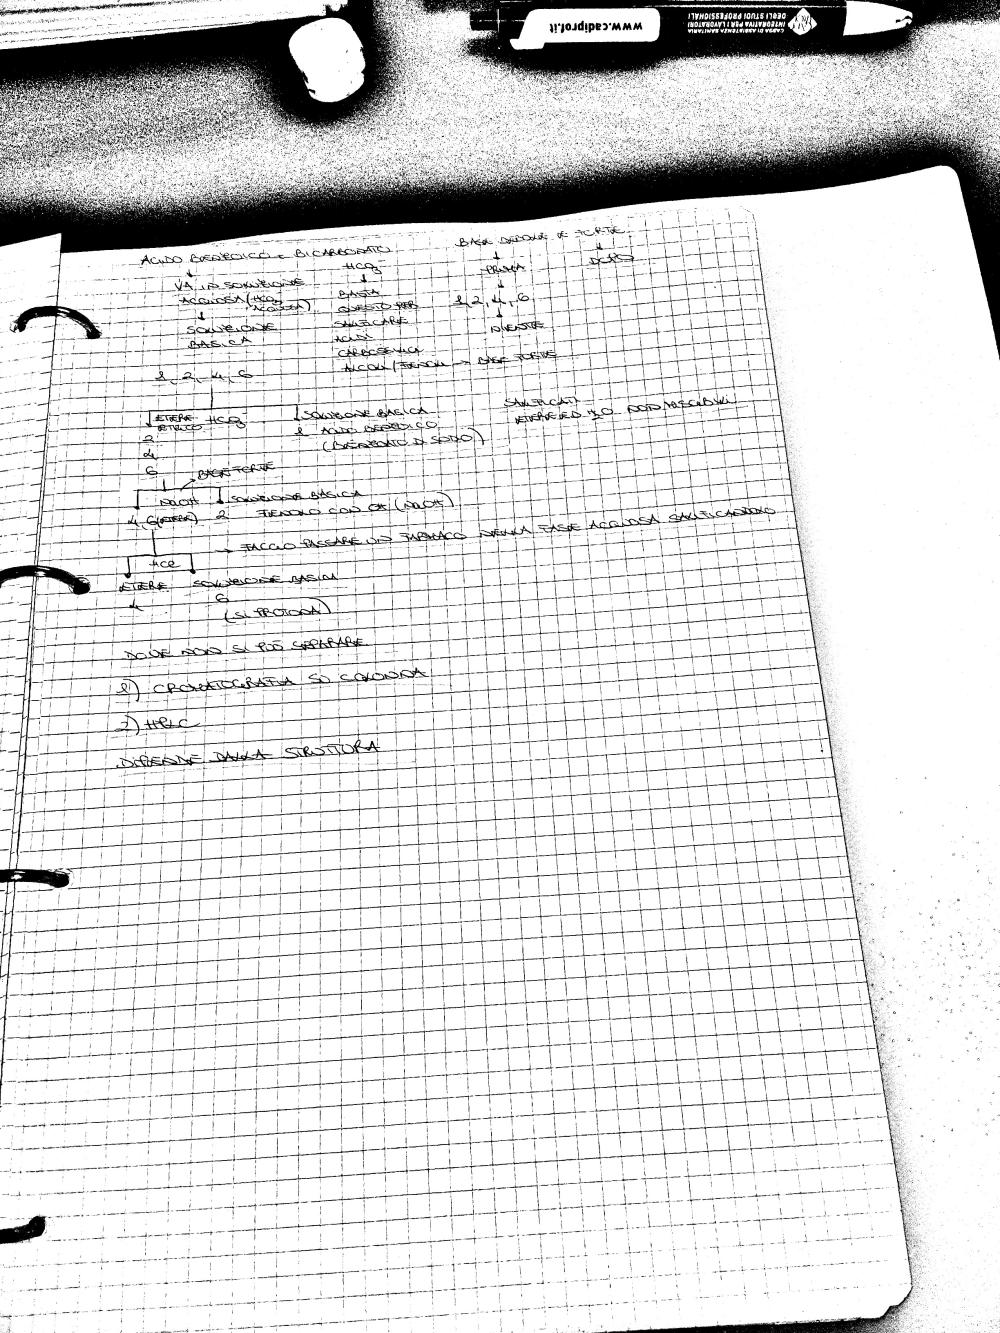 www.cadiprof.it
CASSA DI ASSISTENZA SANITARIA
INTEGRATIVA PER I LAVORATORI
DEGLI STUDI PROFESSIONALI
ACIDO BENZOICO e BICARBONATO
BASE DEBOLE E FORTE
↓
HCO3
↓
↓
VA IN SOLUZIONE
↓
PRIMA
DOPO
ACQUOSA (HCO3
ACQUOSA)
BASTA
↓
1, 2, 4, 6
↓
QUESTO PER
↓
SOLUZIONE
SALIFICARE
NIENTE
BASICA
ACIDI
CARBOSSILICI
ALCOLI / FENOLI → BASE FORTE
1, 2, 4, 6
ETERE HCO3
ETILICO
SOLUZIONE BASICA
SALIFICATI
1 ACIDO BENZOICO
ETERE ED H2O NON MISCIBILI
2
(BENZOATO DI SODIO)
4
6
BASE FORTE
NaOH
SOLUZIONE BASICA
4, 6 (ETERE) 2 FENOLO CON OH (NaOH)
→ FACCIO PASSARE UN FARMACO NELLA FASE ACQUOSA SALIFICANDOLO
HCl
ETERE SOLUZIONE BASICA
4 6
(SI PROTONA)
DOVE NON SI PUÒ SEPARARE
1) CROMATOGRAFIA SU COLONNA
2) HPLC
DIPENDE DALLA STRUTTURA